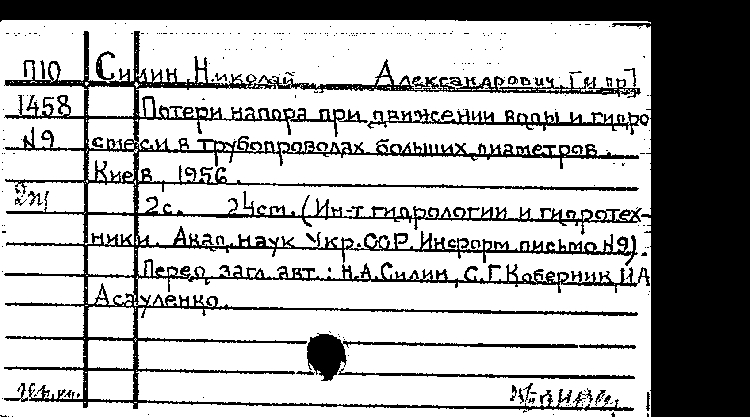 П10 Силин, Николай Александрович [и др]
1458 Потери напора при движении воды и гидро
N9 смеси в трубопроводах больших диаметров.
Киев, 1956.
2с. 24см. (Ин-т гидрологии и гидротех-
ники. Акад. наук Укр.ССР. Информ. письмо N9).
Перед загл. авт.: Н.А.Силин, С.Г.Коберник, И.А
Асауленко.